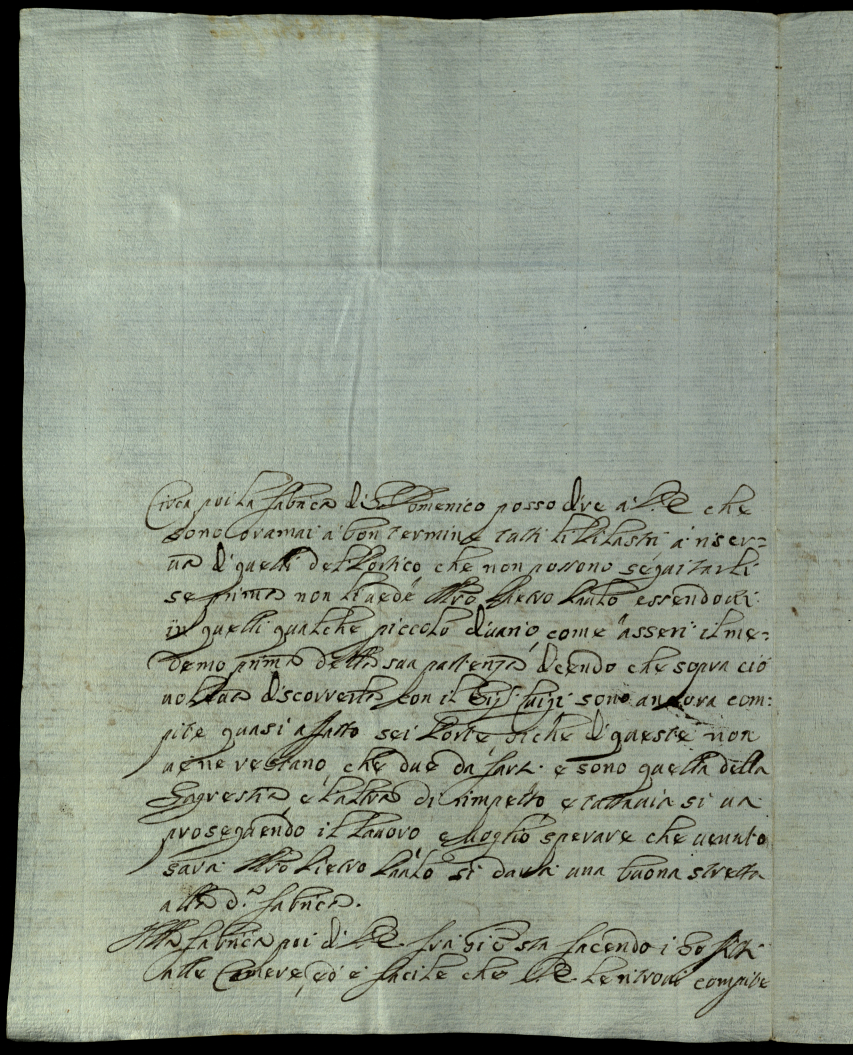 Circa poi la fabrica di S. Domenico posso dire a V.E. che
sono oramai a bon termine tutti li Pilastri a riser=
va di quelli del Portico che non possono seguitarli
se prima non li vede Mro Pietro Paulo essendovi
in quelli qualche piccolo divario, come asserì il me=
demo prima della sua partenza dicendo che sopra ciò
discorrerla con il Sig.r Luigi sono ancora com=
pite quasi a fatto sei Porte, siche di queste non
ve ne restano, che due da farsi e sono quella della
Sagrestia e l'altra di rimpetto e tuttavia si va
proseguendo il lavoro e voglio sperare che venuto
sarà Mro Pietro Paulo si darà una buona stretta
alla d.a fabrica.
Alla fabrica poi di V.E. sta facendo i
alle Camere, ed è facile che V.E. le ritrovi compite